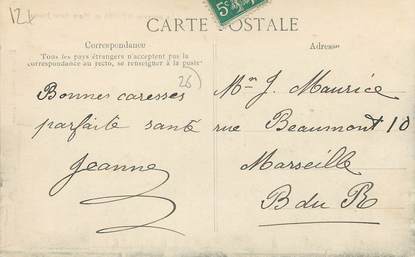 12
CARTE POSTALE
5c
Correspondance
Tous les pays étrangers n'acceptent pas la
correspondance au recto, se renseigner à la poste
Adresse
26
Bonnes caresses
parfaite santé
Jeanne
Mr J. Maurice
rue Beaumont 10
Marseille
B du R